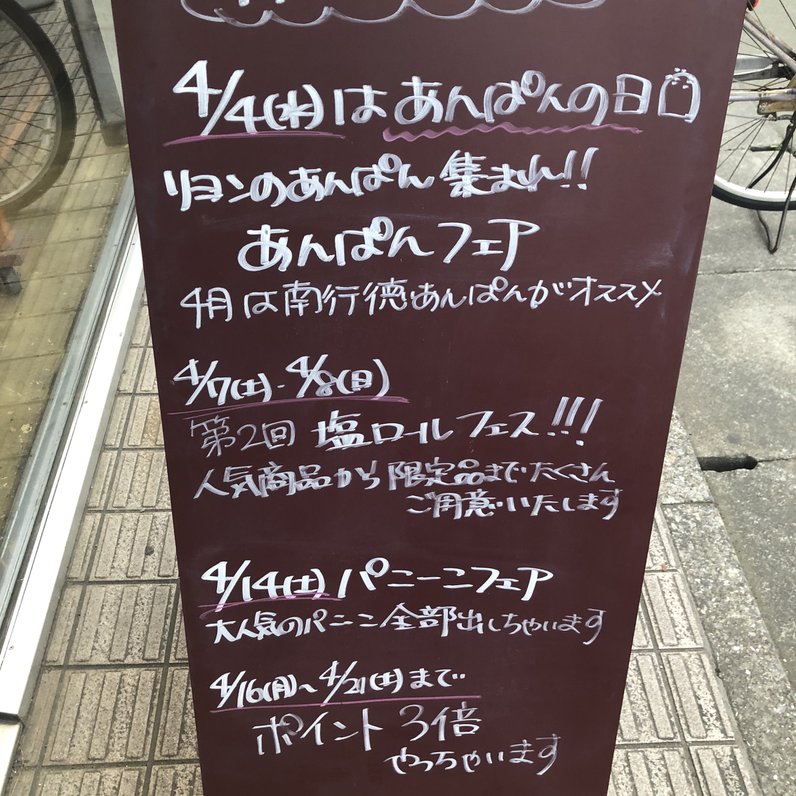 4/4(水)はあんぱんの日
リヨンのあんぱん集まれ!!
あんぱんフェア
4月は南行徳あんぱんがオススメ
4/7(土)・4/8(日)
第2回 塩ロールフェス!!!
人気商品から限定品まで・たくさん
ご用意・いたします
4/14(土) パニーニフェア
大人気のパニーニ全部出しちゃいます
4/16(月)~4/21(土)まで
ポイント3倍
やっちゃいます